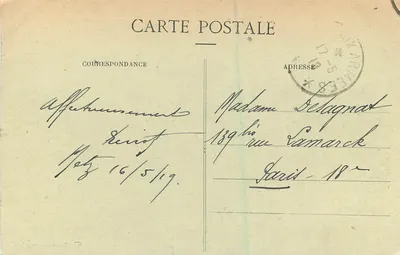 CARTE POSTALE
CORRESPONDANCE
ADRESSE
Affectueusement
Metz 16/5/19
Madame Delagnat
139 bis rue Lamarck
Paris - 18e